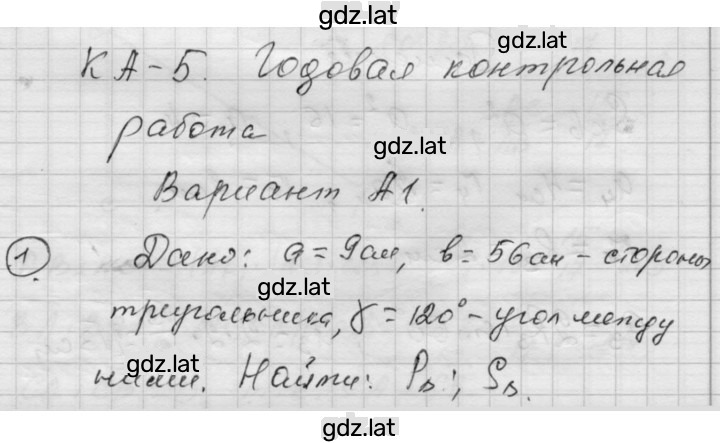 gdz.lat
gdz.lat
КА-5. Годовая контрольная
работа
gdz.lat
Вариант А1.
1. Дано: a = 9см, b = 56см - стороны
gdz.lat
треугольника, γ = 120° - угол между
gdz.lat
ними. Найти: P△; S△.
gdz.lat
gdz.lat